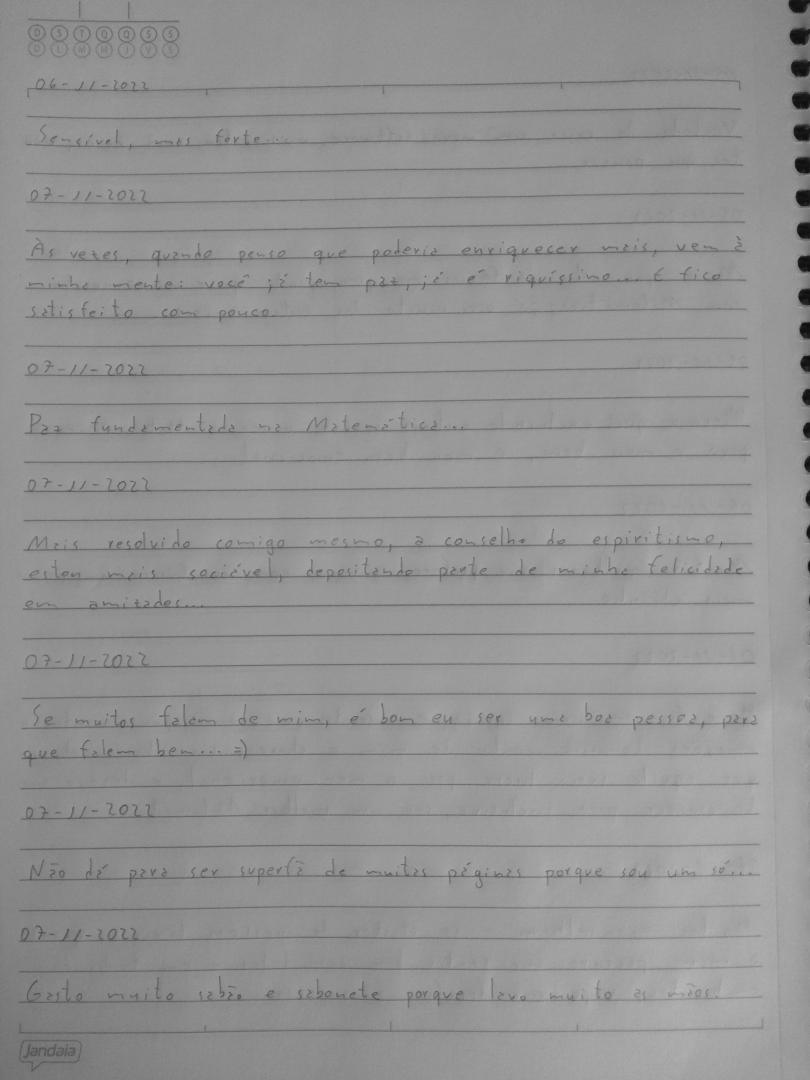 D S T Q Q S S
D L M M J V S
06-11-2022
Sensível, mas forte...
07-11-2022
Às vezes, quando penso que poderia enriquecer mais, vem à
minha mente: você já tem paz, já é riquíssimo... E fico
satisfeito com pouco.
07-11-2022
Paz fundamentada na Matemática...
07-11-2022
Mais resolvido comigo mesmo, a conselho do espiritismo,
estou mais sociável, depositando parte de minha felicidade
em amizades...
07-11-2022
Se muitos falam de mim, é bom eu ser uma boa pessoa, para
que falem bem... =)
07-11-2022
Não dá para ser superfã de muitas páginas porque sou um só...
07-11-2022
Gasto muito sabão e sabonete porque lavo muito as mãos.
Jandaia